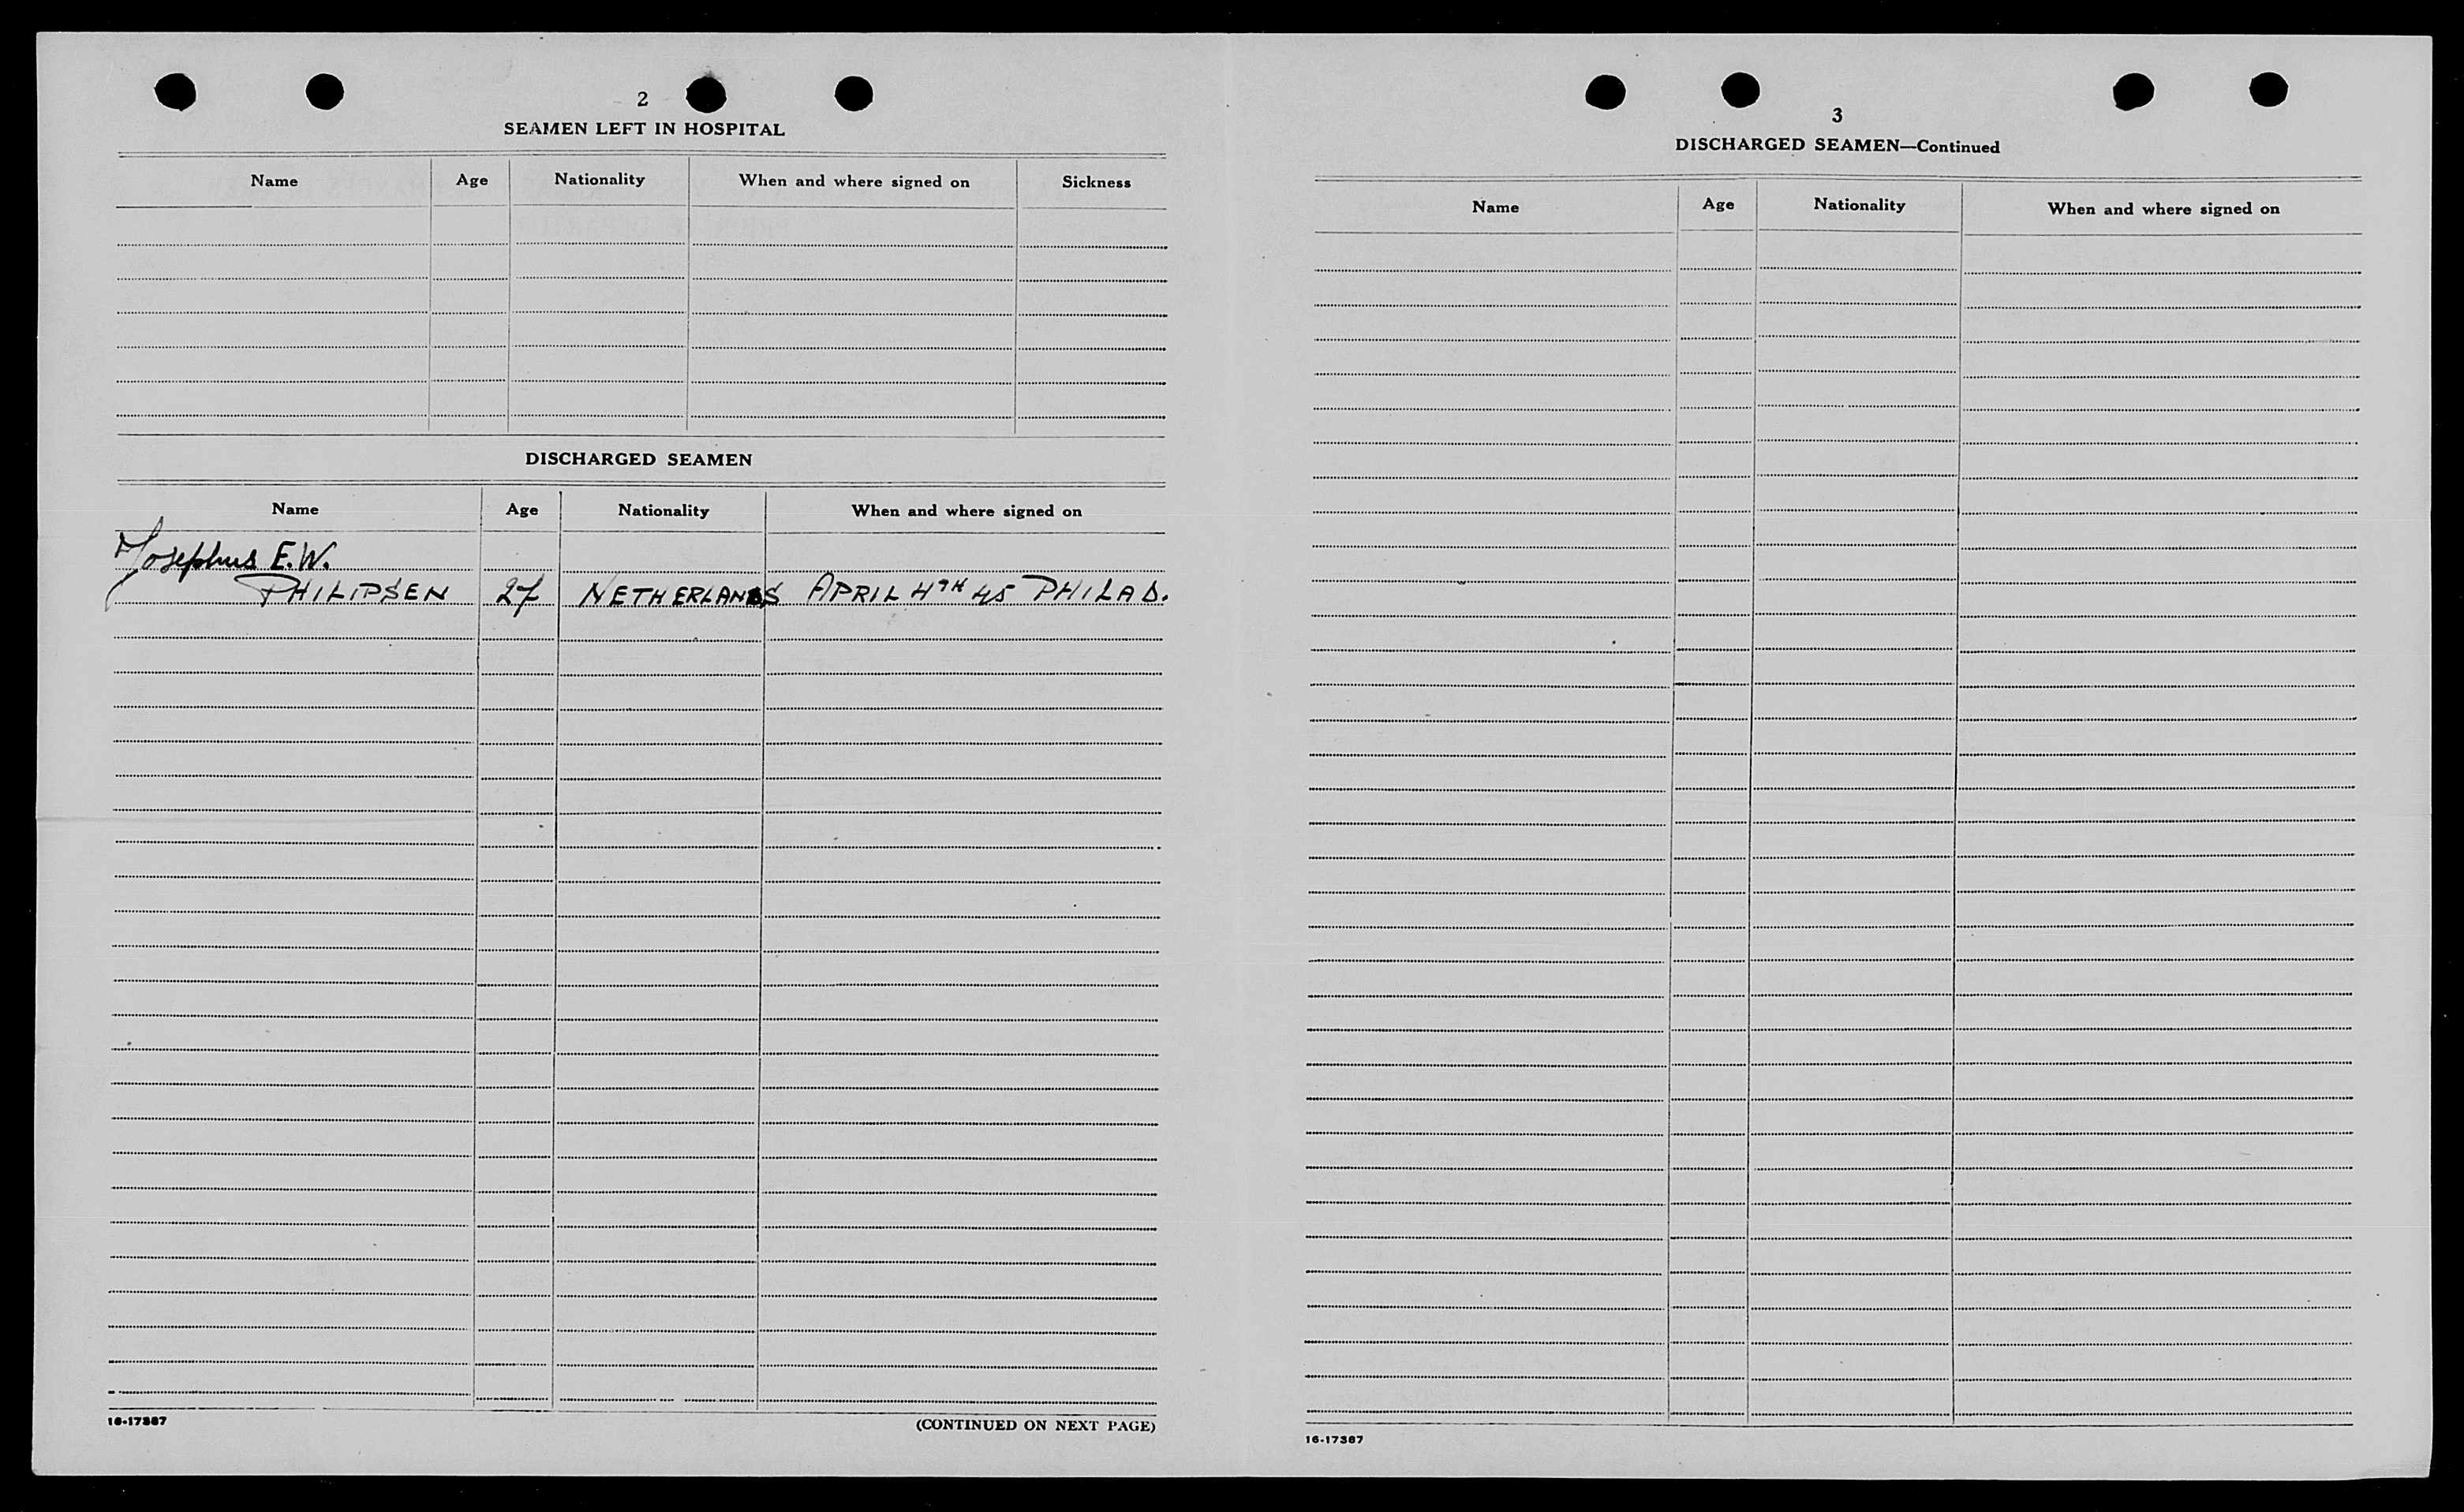 2
SEAMEN LEFT IN HOSPITAL
Name Age Nationality When and where signed on Sickness
DISCHARGED SEAMEN
Name Age Nationality When and where signed on
Josephus E.W.
PHILIPSEN 27 NETHERLANDS APRIL 4TH 45 PHILAD.
16-17387
(CONTINUED ON NEXT PAGE)
3
DISCHARGED SEAMEN—Continued
Name Age Nationality When and where signed on
16-17387